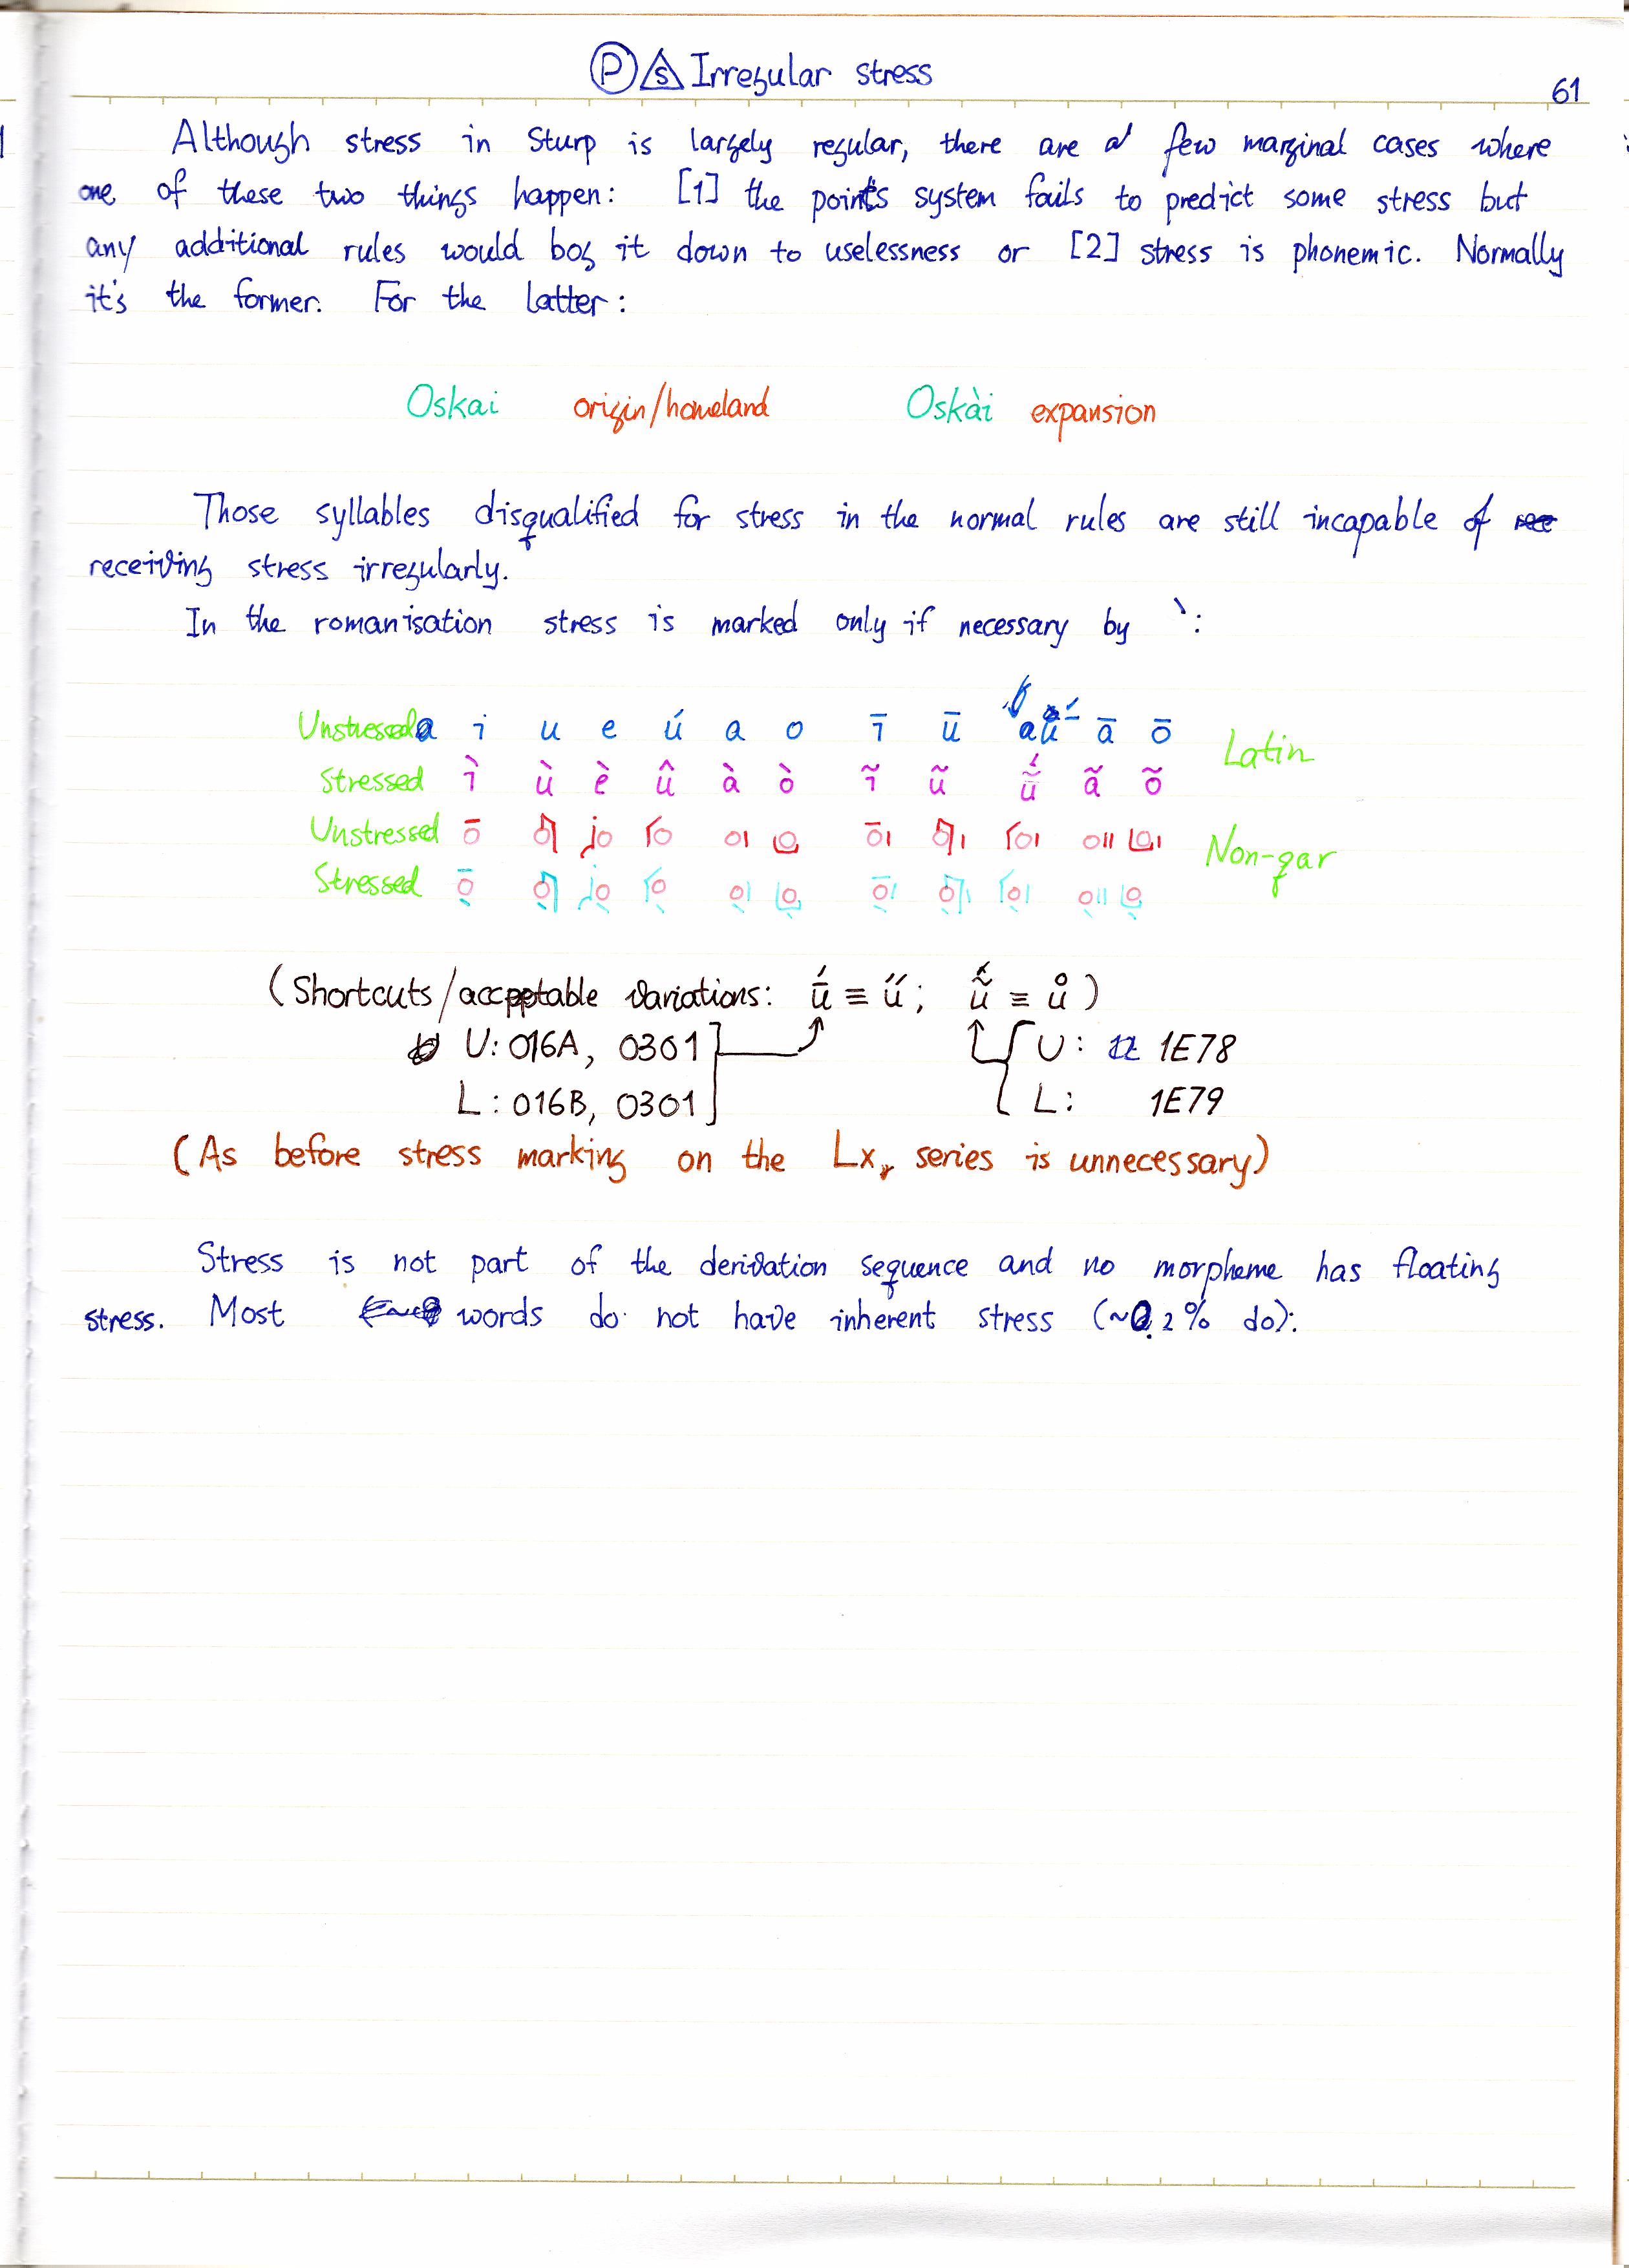 Ⓟ Irregular stress
61
Although stress in Sturp is largely regular, there are a few marginal cases where
one of these two things happen: [1] the points system fails to predict some stress but
any additional rules would bog it down to uselessness or [2] stress is phonemic. Normally
it's the former. For the latter:
Oskai origin/homeland Oskài expansion
Those syllables disqualified for stress in the normal rules are still incapable of
receiving stress irregularly.
In the romanisation stress is marked only if necessary by `:
Unstressed i u e ú a o ī ū ā ō Latin
Stressed ì ù è û à ò ĩ ũ ṹ ã õ
Unstressed Non-qar
Stressed
(Shortcuts/acceptable variations: ū́ ≡ ű; ṹ ≡ ů)
U: 016A, 0301 U: 1E78
L: 016B, 0301 L: 1E79
(As before stress marking on the series is unnecessary)
Stress is not part of the derivation sequence and no morpheme has floating
stress. Most words do not have inherent stress (~0.2% do).